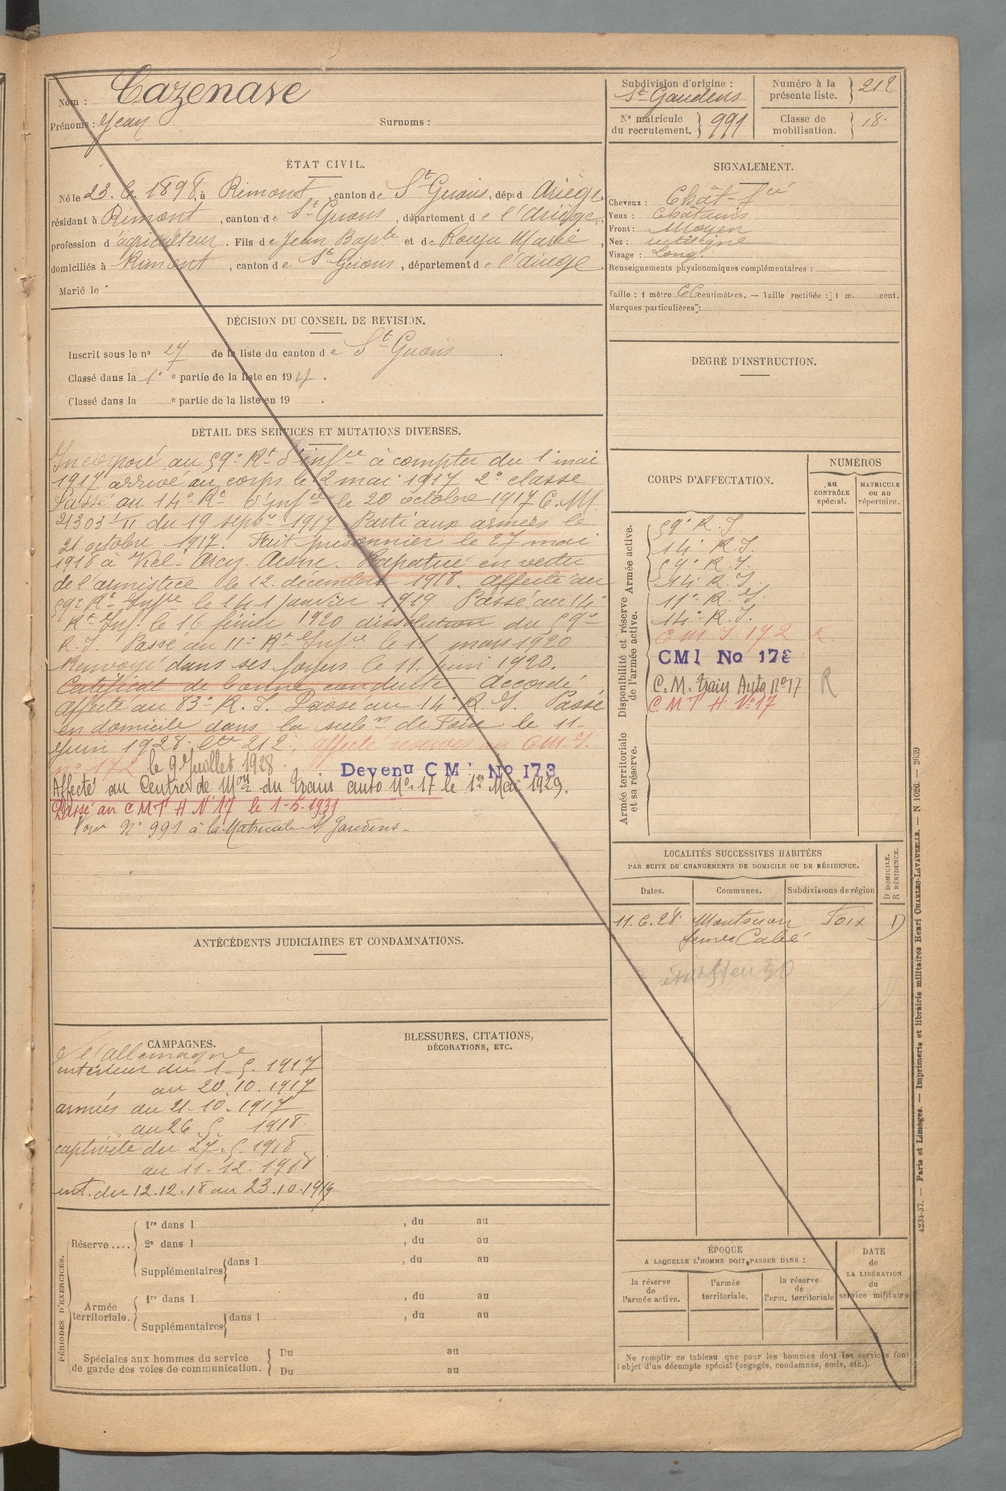 Nom : Cazenave
Prénoms : Jean Surnoms :
Subdivision d'origine : St Gaudens
Numéro à la présente liste. 212
No matricule du recrutement. 991
Classe de mobilisation. 18
ÉTAT CIVIL.
Né le 23. 1898, à Rimont, canton de St Girons, dép d Ariège
résidant à Rimont, canton de St Girons, département de l'Ariège,
profession d'agriculteur. Fils de Jean Bapte et de Rouja Marie,
domiciliés à Rimont, canton de St Girons, département de l'Ariège
Marié le
SIGNALEMENT.
Cheveux : Chât-
Yeux : Chatains
Front : Moyen
Nez : rectiligne
Visage : Long.
Renseignements physionomiques complémentaires :
Taille : 1 mètre 66 centimètres. — Taille rectifiée : 1 m. cent.
Marques particulières :
DÉCISION DU CONSEIL DE REVISION.
Inscrit sous le no 27 de la liste du canton de St Girons.
Classé dans la 1e partie de la liste en 1917.
Classé dans la e partie de la liste en 19 .
DEGRÉ D'INSTRUCTION.
DÉTAIL DES SERVICES ET MUTATIONS DIVERSES.
Incorporé au 59e Rt d'infie à compter du 1er mai
1917 arrivé au corps le 2 mai 1917 2e classe
Passé au 14e Rt d'infie le 20 octobre 1917 C.M.
21303 II du 19 septbre 1917 Parti aux armées le
21 octobre 1917. Fait prisonnier le 27 mai
1918 à Viel-Arcy Aisne. Rapatrié en vertu
de l'armistice le 12 décembre 1918. Affecté au
59e Rt Infie le 14 1 janvier 1919 Passé au 14e
Rt Inf. le 16 février 1920 dissolution du 59e
R.I. Passé au 11e Rt Infie le 11 mars 1920
Renvoyé dans ses foyers le 11 juin 1920.
Certificat de bonne conduite accordé
Affecté au 83e R.I. Passé au 14e R.I. Passé
en domicile dans la subon de Foix le 11-
Juin 1928. 212. Affecté réserves au C.M.I.
no 172 le 9 Juillet 1928. Devenu CMI No 173
Affecté au Centre de Mon du Train auto No 17 le 1er Mai 1929.
Passé au CMT H No 17 le 1-5-1931
Voir No 991 à la Matricule St Gaudens-
CORPS D'AFFECTATION.
NUMÉROS
au CONTRÔLE spécial.
MATRICULE ou au répertoire.
Armée active.
59e R.I.
14e R.I.
59e R.I.
14e R.I.
Disponibilité et réserve de l'armée active.
11e R.I.
14e R.I.
C M I 172 R
CMI No 173
C.M. Train Auto No 17 R
C M T H No 17
Armée territoriale et sa réserve.
LOCALITÉS SUCCESSIVES HABITÉES
PAR SUITE DE CHANGEMENTS DE DOMICILE OU DE RÉSIDENCE.
Dates. Communes. Subdivisions de région
D DOMICILE. R RÉSIDENCE.
11.6.28 Montsuan Foix D
ferme
ANTÉCÉDENTS JUDICIAIRES ET CONDAMNATIONS.
CAMPAGNES.
l'allemagne
intérieur du 1-5-1917
au 20.10.1917
armées du 21.10.1917
au 26.5 1918
captivité du 27.5.1918
au 11-12-1918
int. du 12.12.18 au 23.10.1919
BLESSURES, CITATIONS, DÉCORATIONS, ETC.
PÉRIODES D'EXERCICES.
Réserve....
1re dans l , du au
2e dans l , du au
Supplémentaires dans l , du au
Armée territoriale.
1re dans l , du au
Supplémentaires dans l , du au
Spéciales aux hommes du service de garde des voies de communication.
Du au
Du au
ÉPOQUE
A LAQUELLE L'HOMME DOIT PASSER DANS :
la réserve de l'armée active.
l'armée territoriale.
la réserve de l'arm. territoriale
DATE de LA LIBÉRATION du service militaire
Ne remplir ce tableau que pour les hommes dont les services font
l'objet d'un décompte spécial (engagés, condamnés, omis, etc.).
4234-37. — Paris et Limoges. — Imprimerie et librairie militaires Henri CHARLES-LAVAUZELLE. — N 1026. — 2639